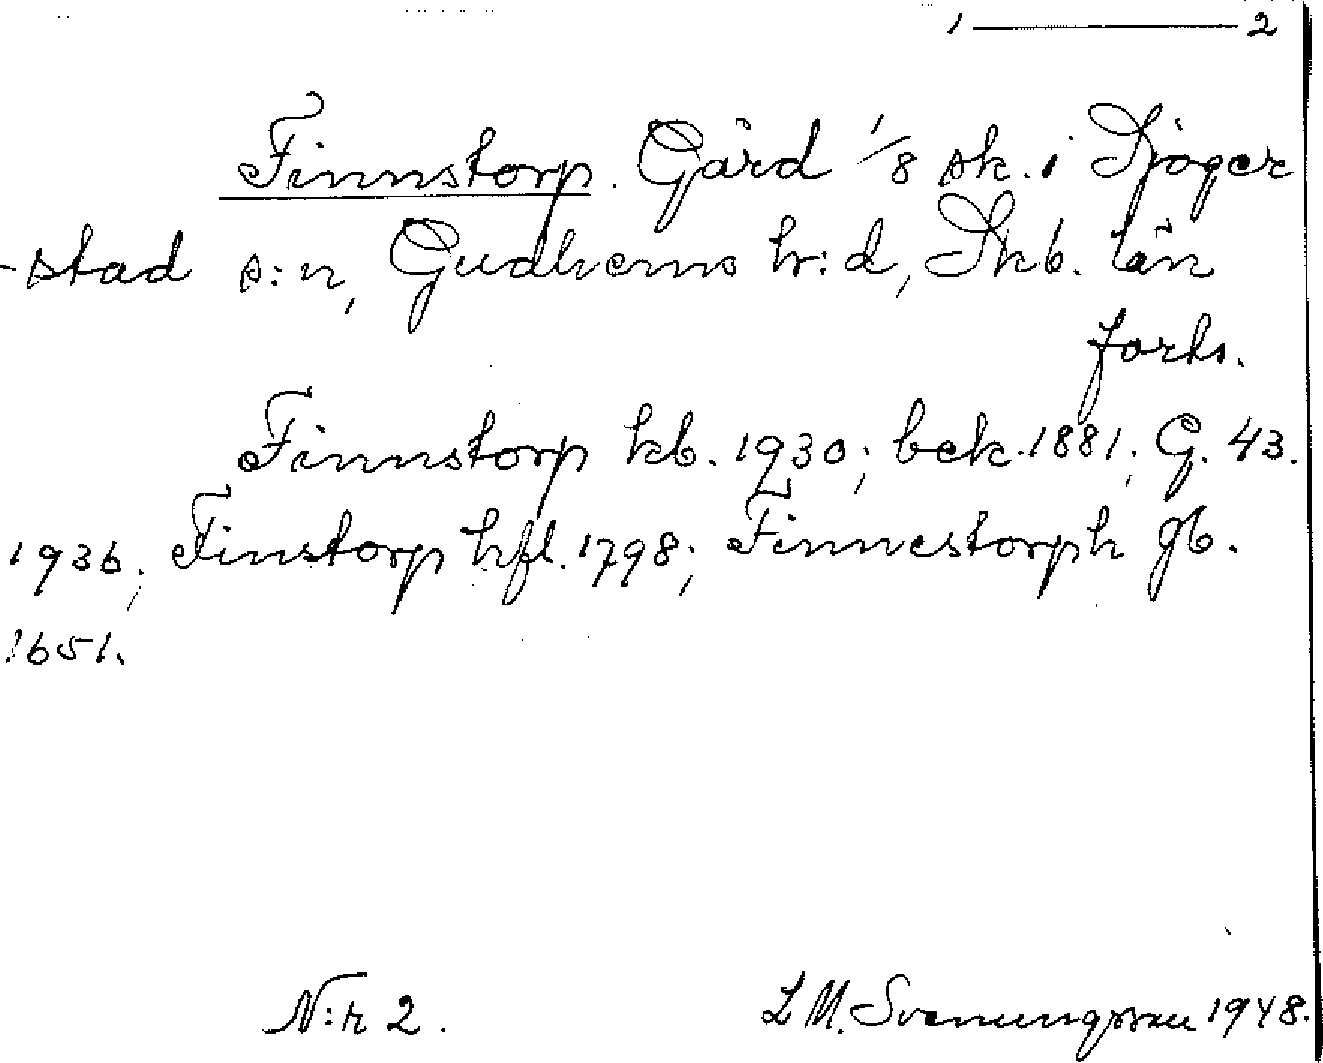 1 ——— 2
Finnstorp. Gård 1/8 sk. i Sjöger
-stad s:n, Gudhems hr:d, Skb. län
forts.
Finnstorp kb. 1930; bek. 1881; G. 43.
1936; Finstorp hfl. 1798; Finnestorph gb.
1651.
N:r 2. L M. Svenungsson 1948.